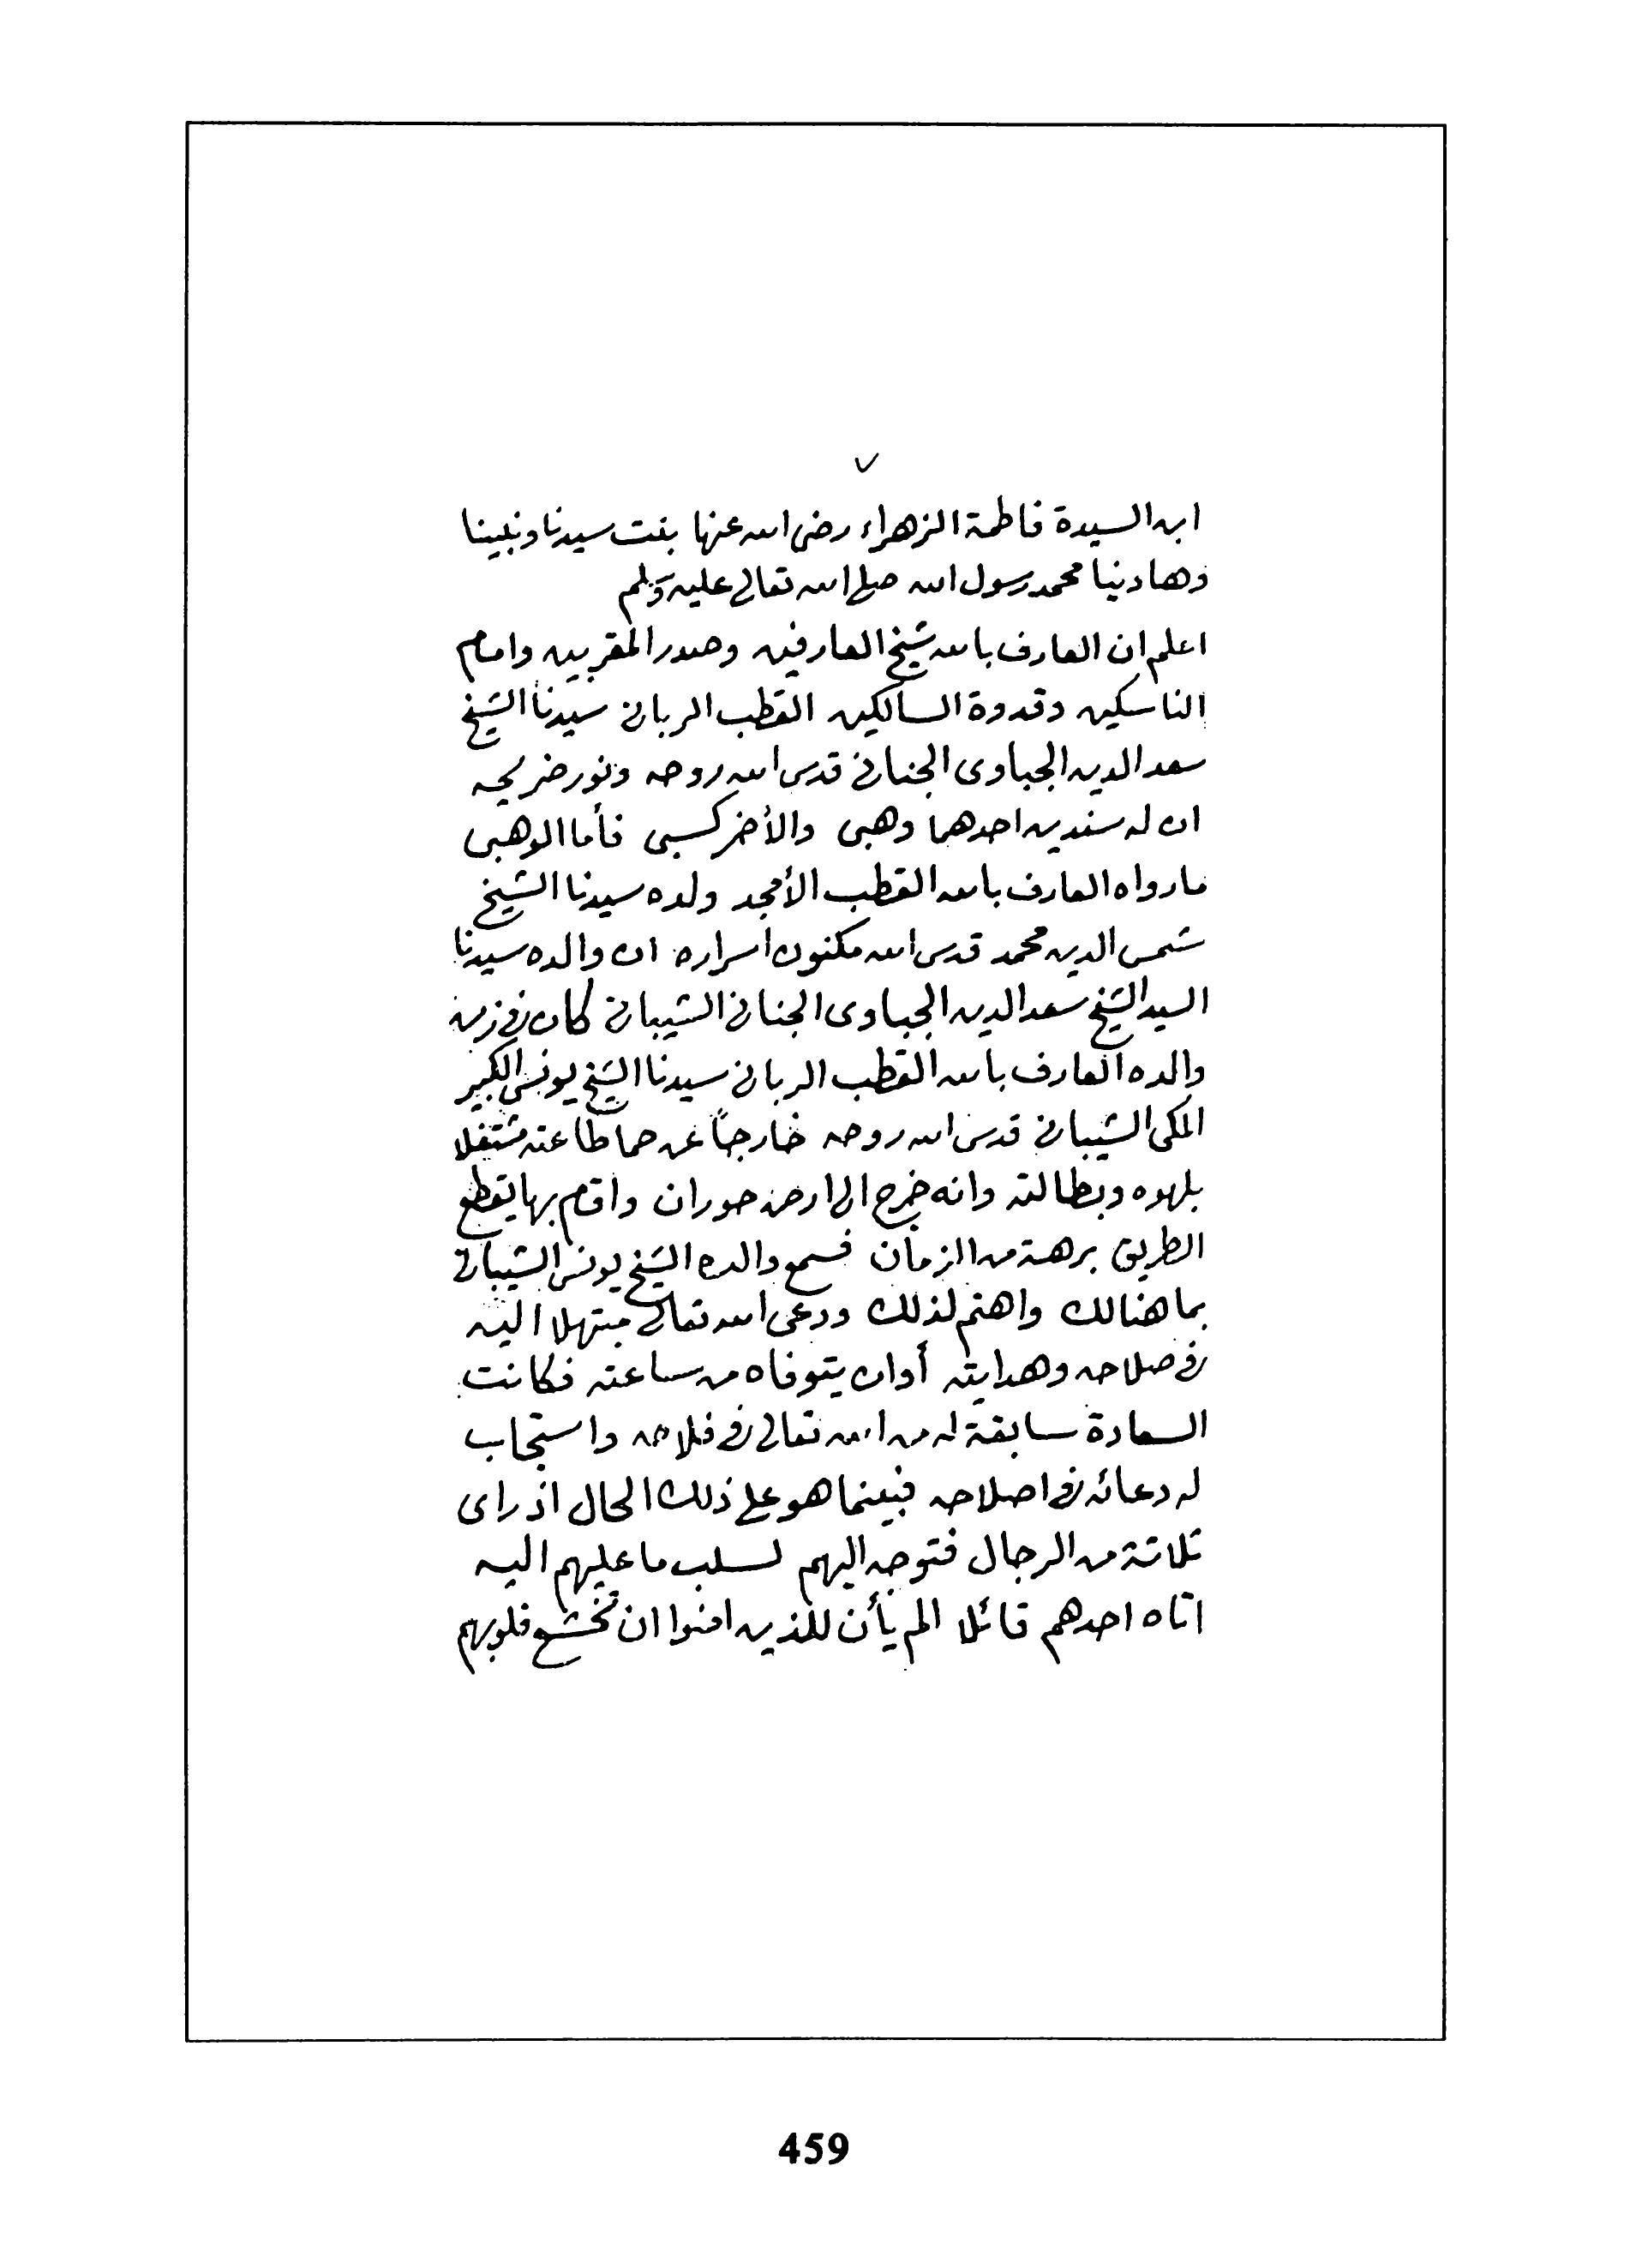 ٧
ابن السيدة فاطمة الزهراء رضى الله عنها بنت سيدنا ونبينا
وهادينا محمد رسول الله صلى الله تعالى عليه وسلم
اعلم ان العارف بالله شيخ العارفين وصدر المقربين وامام
الناسكين وقدوة السالكين القطب الربانى سيدنا الشيخ
سعد الدين الجباوى الجنانى قدس الله روحه ونور ضريحه
ان له سندين احدهما وهبى والأخر كسبى فأما الوهبى
مارواه العارف بالله القطب الأمجد ولده سيدنا الشيخ
شمس الدين محمد قدس الله مكنون اسراره ان والده سيدنا
السيد الشيخ سعد الدين الجباوى الجنانى الشيبانى كان فى زمن
والده العارف بالله القطب الربانى سيدنا الشيخ يونس الكبير
المكى الشيبانى قدس الله روحه خارجاً عن حما طاعته مشتغلا
بلهوه وبطالته وانه خرج الى ارض حوران واقام بها يقطع
الطريق برهة من الزمان فسمع والده الشيخ يونس الشيبانى
بما هنالك واهتم لذلك ودعى الله تعالى مبتهلا اليه
فى صلاحه وهدايته أوان يتوفاه من ساعته فكانت
السعادة سابقة له من الله تعالى فى فلاحه واستجاب
له دعائه فى اصلاحه فبينما هو على ذلك الحال اذ راى
ثلاثة من الرجال فتوجه اليهم لسلب ما عليهم اليه
اتاه احدهم قائلا الم يأن للذين امنوا ان تخشع قلوبهم
459